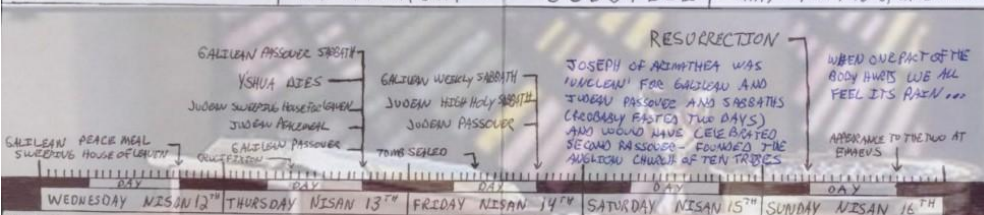 RESURRECTION
GALILEAN PASSOVER SABBATH
YSHUA DIES
JUDEAN SWEEPING HOUSE FOR LEAVEN
JUDEAN PEACEMEAL
GALILEAN PASSOVER
CRUCIFIXION
GALILEAN PEACE MEAL
SWEEPING HOUSE OF LEAVEN
GALILEAN WEEKLY SABBATH
JUDEAN HIGH HOLY SABBATH
JUDEAN PASSOVER
TOMB SEALED
JOSEPH OF ARIMATHEA WAS
'UNCLEAN' FOR GALILEAN AND
JUDEAN PASSOVER AND SABBATHS
(PROBABLY FASTED TWO DAYS)
AND WOULD HAVE CELEBRATED
SECOND PASSOVER - FOUNDED THE
ANGLICAN CHURCH OF TEN TRIBES
WHEN ONE PART OF THE
BODY HURTS WE ALL
FEEL ITS PAIN...
APPEARANCE TO THE TWO AT
EMMAUS
DAY DAY DAY DAY DAY
WEDNESDAY NISAN 12TH THURSDAY NISAN 13TH FRIDAY NISAN 14TH SATURDAY NISAN 15TH SUNDAY NISAN 16TH